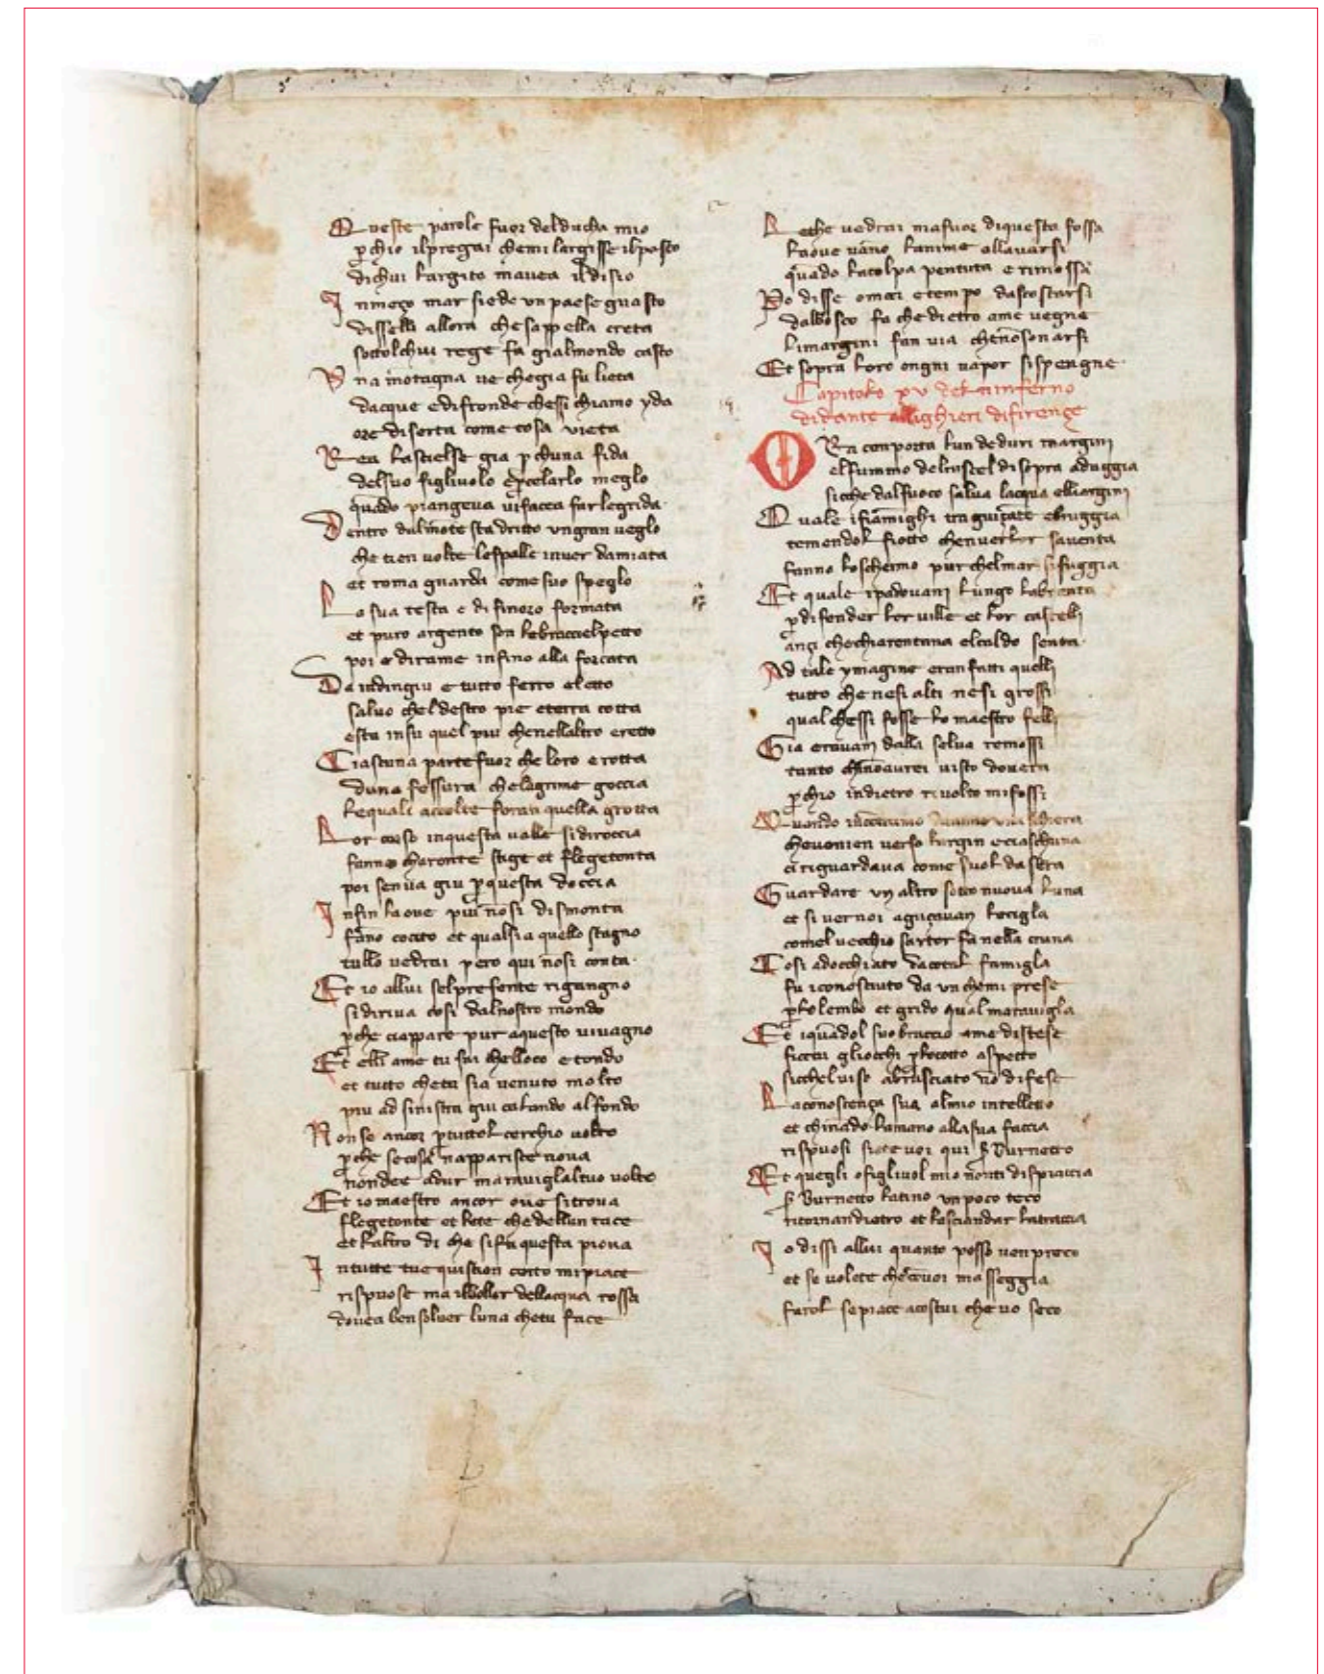 Queste parole fuor delducha mio
p chio ilpregai chemi largisse ilpasto
dichui largito mavea il disio
In meço mar siede un paese guasto
disselli allora che sappella creta
sottolchui rege fu gialmondo casto
Una motagna ve chegia fu lieta
dacque edifronde chessi chiamo yda
ore diserta come cosa vieta
Rea lascielse gia p chuna fida
delsuo figliuolo epcelarlo meglo
quado piangeva vifacea farlegrida
Dentro dalmote sta dritto vngran veglo
che tien volte lespalle inver damiata
et roma guarda come suo speglo
La sua testa e di finoro formata
et puro argento son lebraccielpetto
poi e dirame infino alla forcata
Da indingiu e tutto ferro eletto
salvo cheldestro pie eterra cotta
esta insu quel piu chenellaltro eretto
Ciascuna parte fuor che loro e rotta
duna fessura chelagrime goccia
lequali accolte foran quella grotta
Lor corso inquesta valle sidiroccia
fanno charonte stige et flegetonta
poi senva giu pquesta doccia
Infin laove piu nosi dismonta
fano cocito et qualsia quello stagno
tullo vedrai pero qui nosi conta
Et io allui selpresente rigangno
sidiriva cosi dalnostro mondo
pche ciappare pur aquesto vivagno
Et elli ame tu sai chelloco etondo
et tutto chetu sia venuto molto
piu ad sinistra giu calando alfondo
Non se ancor ptuttol cerchio volto
pche secosa nappariscie nova
nondee adur maraviglaltuo volto
Et io maestro ancor ove sitrova
flegetonte et lete chedellun tace
et laltro di che sifa questa piova
In tutte tue quistion certo mipiace
rispuose ma ilbollor dellacqua rossa
dovea ben solver luna chetu face
Lethe vedrai mafuor diquesta fossa
laove vano lanime allavarsi
quado lacolpa pentuta e rimossa
Po disse omai etempo dascostarsi
dalbosco fa chedietro ame vegne
limargini fan via chenosonarsi
Et sopra loro ongni vapor sispengne
Capitolo xv dellinferno
didante allighieri difirençe
ORa cenporta lun deduri margini
elfummo delruscel disopra aduggia
sicche dalfuoco salva lacqua elliargini
Quale ifiamighi tra guiçate ebruggia
temendol fiotto chenverlor saventa
fanno loschermo purchelmar sifuggia
Et quale ipadovani lungo labrenta
pdifender lor ville et lor castelli
ançi chechiarentana elcaldo senta
Ad tale ymagine eranfatti quelli
tutto chenesi alti nesi grossi
qual chessi fosse lo maestro felli
Gia eravam dalla selva remossi
tanto chinoaurei visto dovera
pchio indietro rivolto mifossi
Quando incontrammo danime una schiera
chevenien verso largin eciaschuna
ciriguardava come suol dasera
Guardare vn altro sotto nuova luna
et sivernoi aguçavan lecigla
comel vecchio sartor fanella cruna
Cosi adocchiato dacotal famigla
fu iconosciuto da vn chemi prese
plolembo et grido qual maravigla
Et iquadol suobraccio ame distese
ficcai gliocchi plocotto aspetto
sicchelviso abrusciato no difese
Laconoscença sua almio intelletto
et chinado lamano allasua faccia
rispuosi siete voi qui s Burnetto
Et quegli ofigliuol mio nonti dispiaccia
s Burnetto latino vnpoco teco
ritornandietro et lasciandar latraccia
Io dissi allui quanto posso venpreco
et se volete checonvoi masseggia
farol sepiace acostui che vo seco